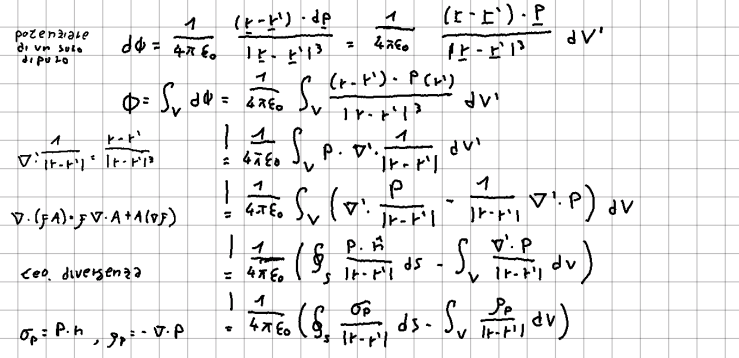 potenziale di un solo dipolo dϕ = \frac{1}{4πε₀} \frac{(r-r')·dp}{|r-r'|³} = \frac{1}{4πε₀} \frac{(r-r')·P}{|r-r'|³} dV'
ϕ = ∫_V dϕ = \frac{1}{4πε₀} ∫_V \frac{(r-r')·P(r')}{|r-r'|³} dV'
∇'·\frac{1}{|r-r'|} = \frac{r-r'}{|r-r'|³} | = \frac{1}{4πε₀} ∫_V P·∇'·\frac{1}{|r-r'|} dV'
∇·(fA) = f∇·A + A(∇f) | = \frac{1}{4πε₀} ∫_V (∇'·\frac{P}{|r-r'|} - \frac{1}{|r-r'|} ∇'·P) dV
teo. divergenza | = \frac{1}{4πε₀} (∮_S \frac{P·n̂}{|r-r'|} ds - ∫_V \frac{∇'·P}{|r-r'|} dv)
σ_P = P·n , ρ_P = -∇·P | = \frac{1}{4πε₀} (∮_S \frac{σ_P}{|r-r'|} ds - ∫_V \frac{ρ_P}{|r-r'|} dV)